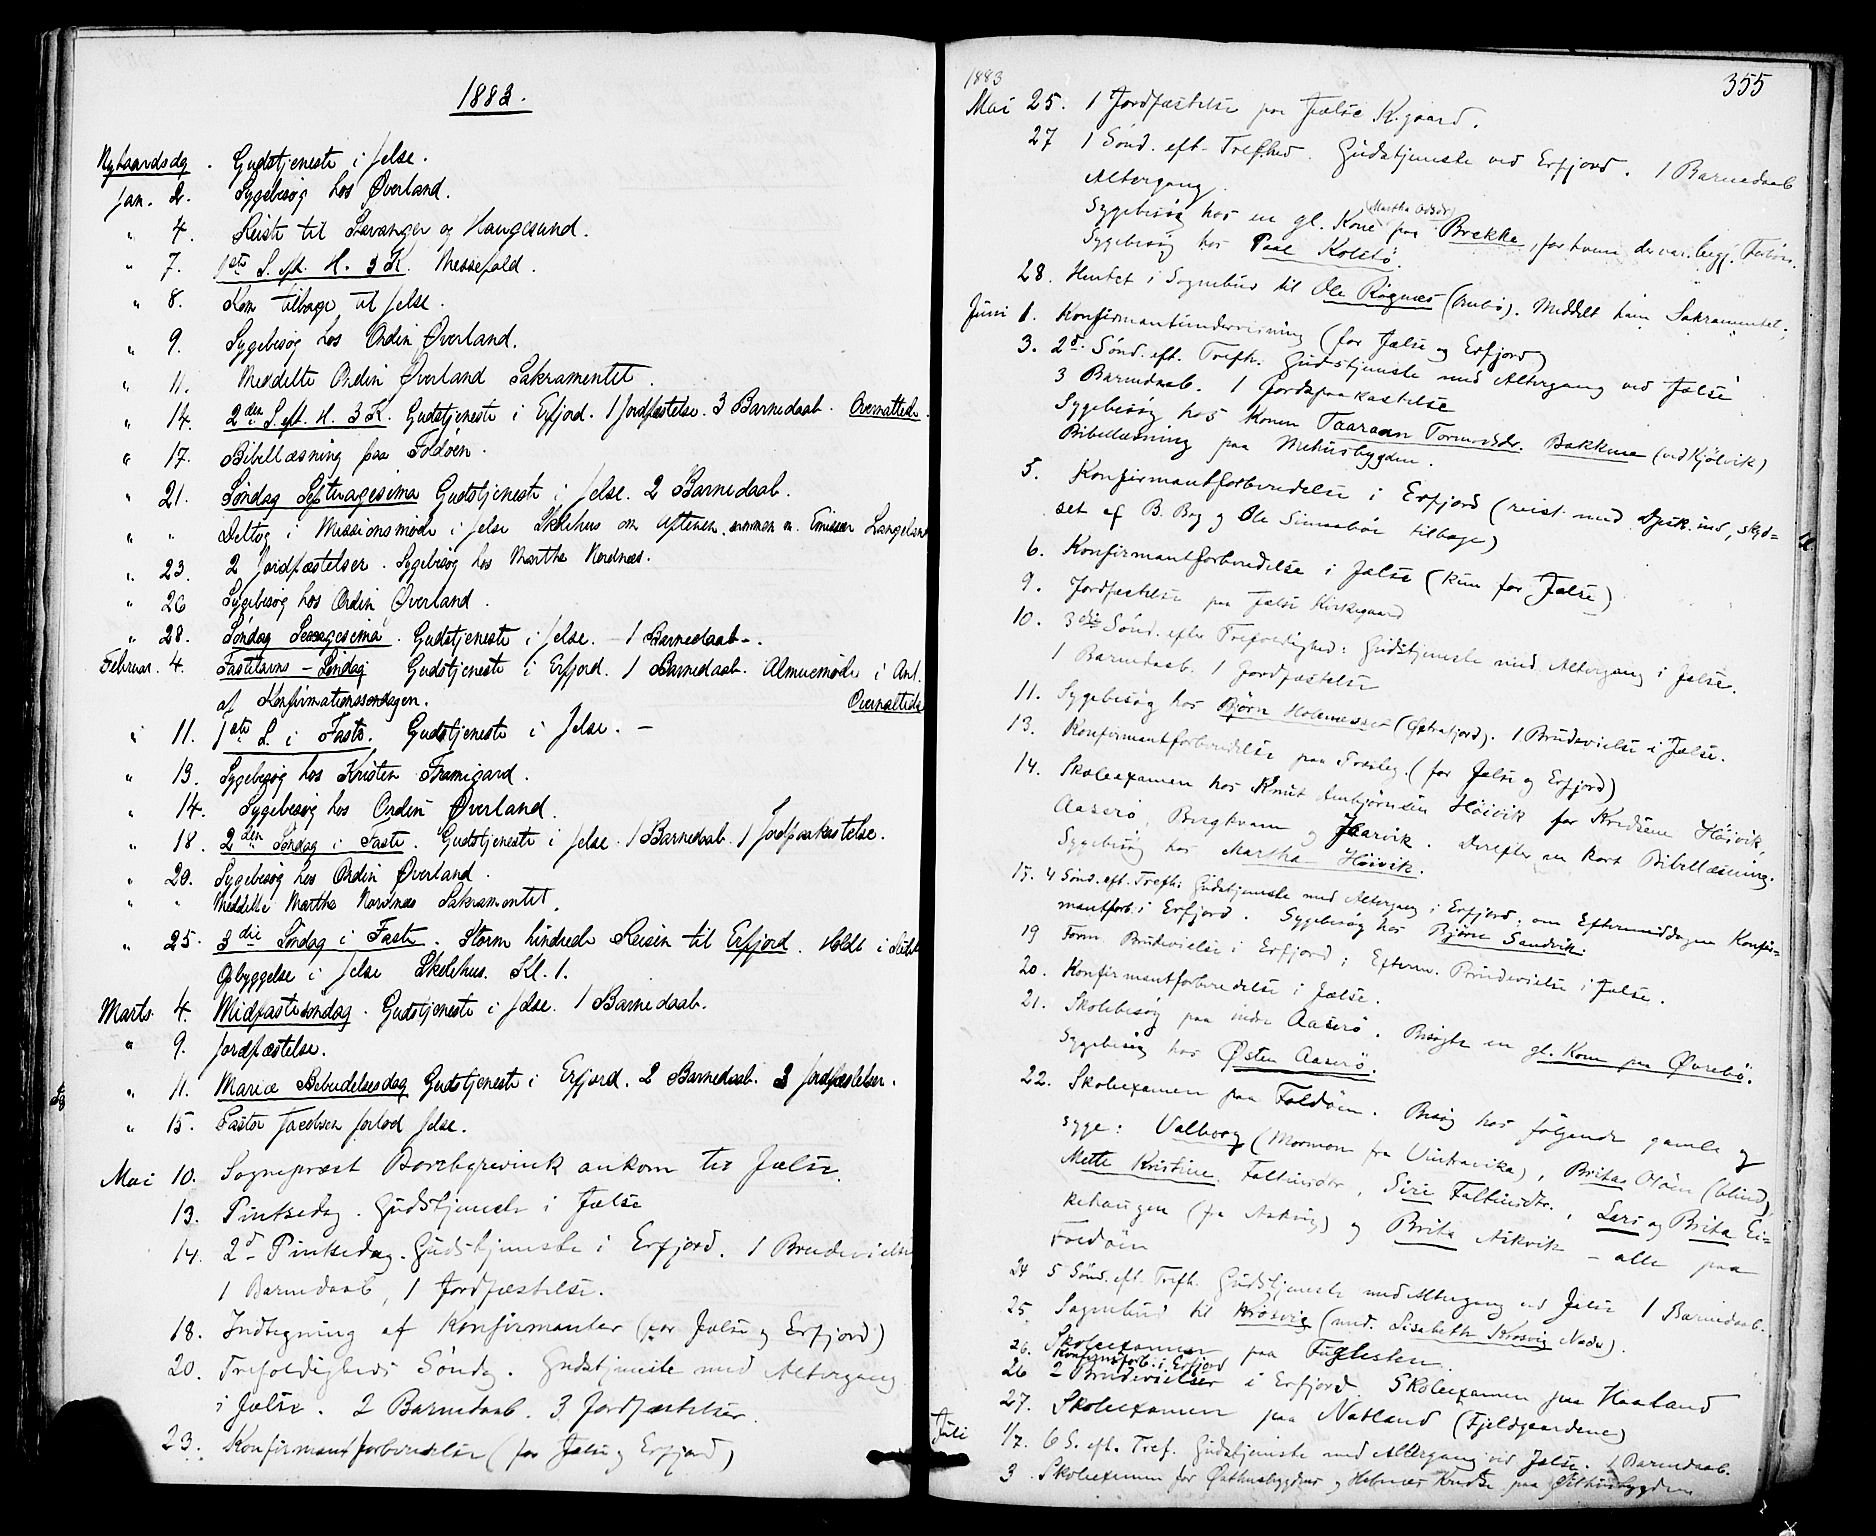 1883.
Nytaarsdag. Gudstjeneste i Jelse.
Jan. 2. Sygebesøg hos Øverland.
" 4. Reiste til Stavanger og Haugesund.
" 7. 1ste S. eft. H. 3 K. Messefald.
" 8. Kom tilbage til Jelse.
" 9. Sygebesøg hos Ordin Øverland.
" 11. Meddelte Ordin Øverland Sakramentet.
" 14. 2den S. eft. H. 3 K. Gudstjeneste i Erfjord. 1 Jordfæstelse. 3 Barnedaab. Overnattede.
" 17. Bibellæsning paa Foldøen.
" 21. Søndag Septuagesima Gudstjeneste i Jelse. 2 Barnedaab.
" " Deltog i Missionsmøde i Jelse Skolehus om Aftenen, sammen m. Emissær Langeland
" 23. 2 Jordfæstelser. Sygebesøg hos Martha Nordnæs.
" 26 Sygebesøg hos Ordin Øverland.
" 28. Søndag Sexagesima. Gudstjeneste i Jelse. — 1 Barnedaab.
Februar. 4. Fastelavns-Søndag Gudstjeneste i Erfjord. 1 Barnedaab. Almuemøde i Anl.
af Konfirmationssøndagen. Overnattede
" 11. 1ste S. i Faste. Gudstjeneste i Jelse. —
" 13. Sygebesøg hos Kristen Framigard.
" 14. Sygebesøg hos Ordin Øverland.
" 18. 2den Søndag i Faste. Gudstjeneste i Jelse. 1 Barnedaab. 1 Jordpaakastelse.
" 20. Sygebesøg hos Ordin Øverland.
" " Meddelte Martha Nordnæs Sakramentet.
" 25. 3die Søndag i Faste. Storm hindrede Reisen til Erfjord. Holdt i Stedet
Opbyggelse i Jelse Skolehus. Kl. 1.
Marts 4. Midfastesøndag. Gudstjeneste i Jelse. 1 Barnedaab.
" 9. Jordfæstelse.
" 11. Mariæ Bebudelsesdag Gudstjeneste i Erfjord. 2 Barnedaab. 3 Jordfæstelser.
" 15. Pastor Jacobsen forlod Jelse.
Mai 10. Sognepræst Borchgrevink ankom til Jælse.
13. Pintsedag. Gudstjeneste i Jælse
14. 2d Pintsedag. Gudstjeneste i Erfjord. 1 Brudevielse
1 Barnedaab, 1 Jordfæstelse.
18. Indtegning af Konfirmanter (for Jælse og Erfjord)
20. Trefoldigheds Søndag. Gudstjeneste med Altergang
i Jælse. 2 Barnedaab. 3 Jordfæstelser.
23. Konfirmantforberedelse (for Jælse og Erfjord)
1883 355
Mai 25. 1 Jordfæstelse paa Jælse K.gaard.
27 1 Sønd. eft. Trefhed. Gudstjeneste ved Erfjord. 1 Barnedaab
Altergang.
(Martha Oddsdr)
Sygebesøg hos en gl. Kone paa Brekke, for hvem der var begj. Forbøn.
Sygebesøg hos Paal Kolstø.
28. Hentet i Sognebud til Ole Røgnæs (Ombø). Meddelt ham Sakramentet.
Juni 1. Konfirmantundervisning (for Jælse og Erfjord)
3. 2d Sønd. eft. Trefh. Gudstjeneste med Altergang ved Jælse
3 Barnedaab. 1 Jordspaakastelse
Sygebesøg hos Konen Taaraan Tormodsdr. Bakkene (ved Kjølvik)
Bibellæsning paa Mehusbygden.
5. Konfirmantforberedelse i Erfjord (reist med ind, skyd-
set af B. Bog og Ole Simsabøe tilbage)
6. Konfirmantforberedelse i Jælse (kun for Jælse)
9. Jordfæstelse paa Jælse Kirkegaard
10. 3die Sønd. efter Trefoldighed: Gudstjeneste med Altergang i Jælse.
1 Barnedaab. 1 Jordfæstelse
11. Sygebesøg hos Bjørn Holmesset (Østrafjord). 1 Brudevielse i Jælse.
13. Konfirmantforberedelse paa (for Jælse og Erfjord)
14. Skoleexamen hos Knut Ambjørnsen Høivik for Kredsene Høivik,
Aaserø, Bergkvam og Hærvik. Derefter en kort Bibellæsning.
Sygebesøg hos Martha Høivik.
17. 4 Sønd. eft. Trefh: Gudstjeneste med Altergang i Erfjord, om Eftermiddagen Konfir-
mantforb. i Erfjord. Sygebesøg hos Bjørn Sandvik.
19 Form. Brudevielse i Erfjord; Efterm. Brudevielse i Jælse.
20. Konfirmantforberedelse i Jælse.
21. Skolebesøg paa indre Aaserø. Besøgte en gl. Kone paa Øvrebø.
Sygebesøg hos Østen Aaserø.
22. Skoleexamen paa Foldøen. Besøg hos følgende gamle og
syge: Valborg (Mormon fra Vintravika), Brita Oløen (blind)
Mette Kristine Faltinsdtr, Siri Faltinsdtr., Lars og Brita Ei-
kehaugen (fra Aakvig) og Brita Aikvik — alle paa
Foldøen
24 5 Sønd. eft. Trefh. Gudstjeneste med Altergang ved Jælse 1 Barnedaab.
25. Sognebud til Krosvig (med. Lisabeth Krosvig Nadv.)
26. Skoleexamen paa Fuglesten.
Konfirmforb. i Erfjord
26 2 Brudevielser i Erfjord. Skoleexamen paa Haaland
27. Skoleexamen paa Natland (Fjeldgaardene)
Juli 1/7. 6 S. eft. Tref. Gudstjeneste med Altergang ved Jælse. 1 Barnedaab.
3. Skoleexamen for Østhusbygdens og Hebnes Kreds paa Østhusbygden